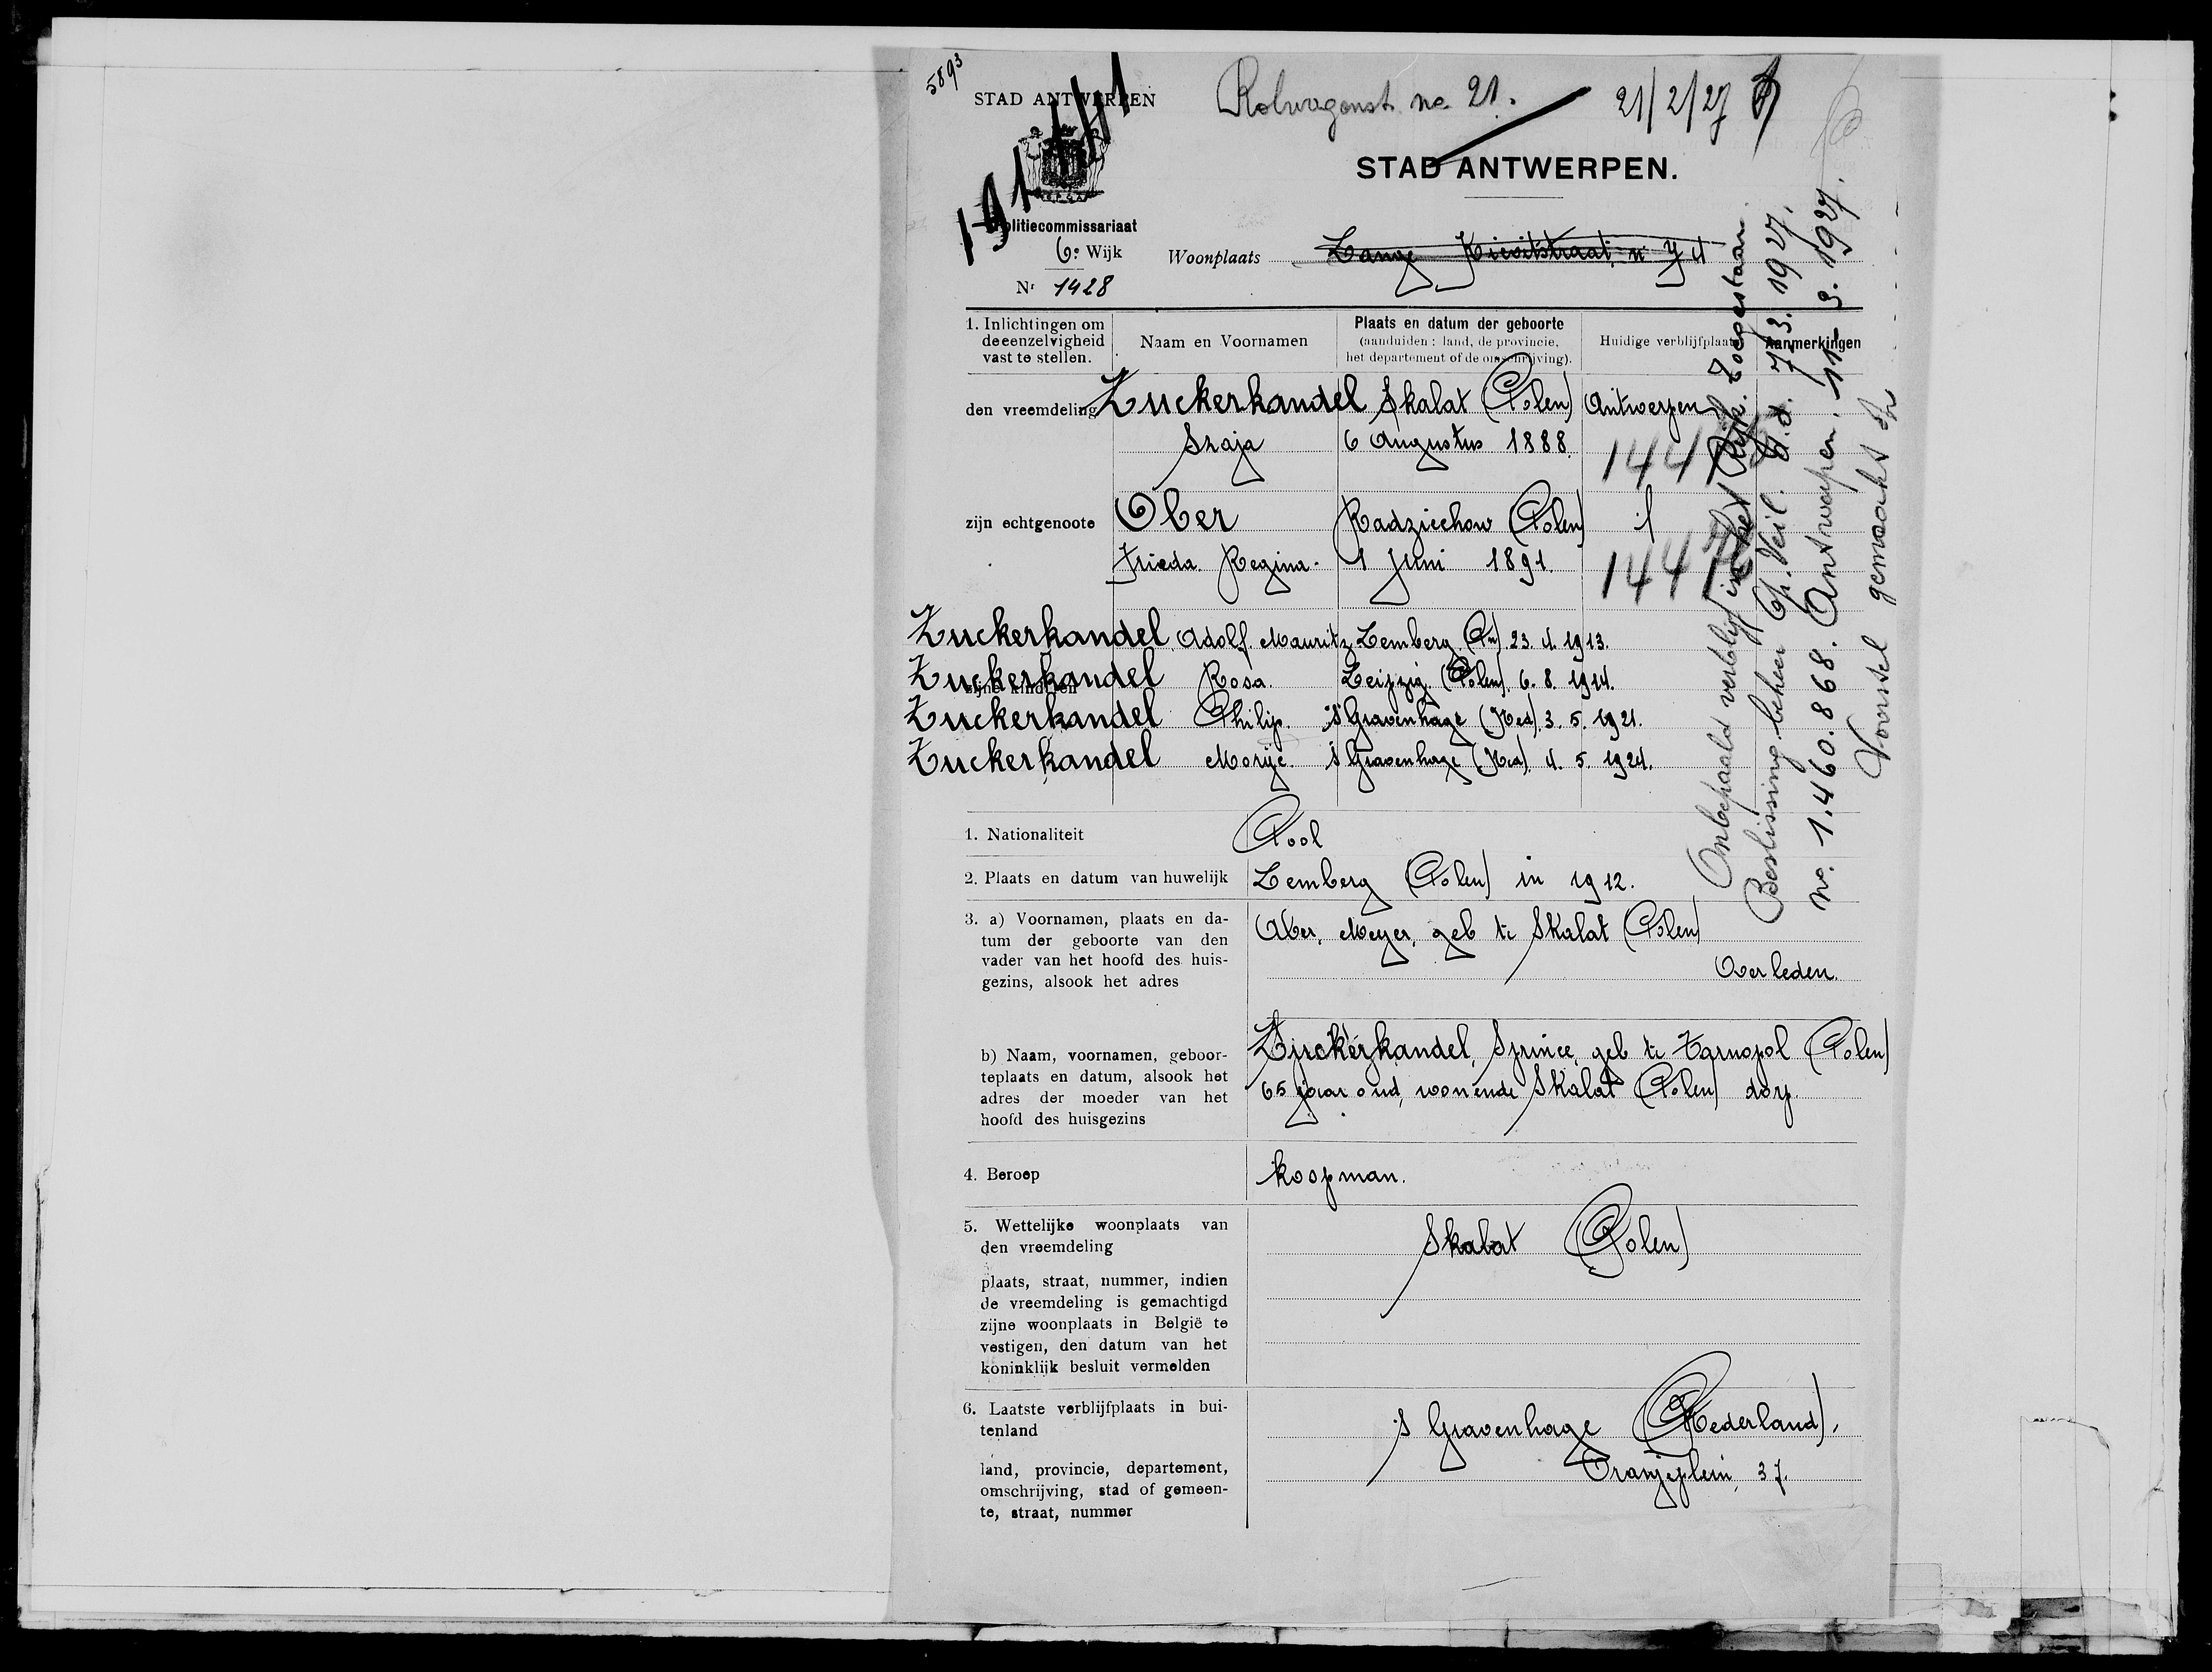 5893
STAD ANTWERPEN
Rolwagenst. no. 21. 21/2/27
191 111
STAD ANTWERPEN.
Politiecommissariaat
6e Wijk
Woonplaats Lange Kievitstraat n 74
Nr 1428
1. Inlichtingen om de eenzelvigheid vast te stellen.
Naam en Voornamen
Plaats en datum der geboorte
(aanduiden : land, de provincie,
het departement of de omschrijving).
Huidige verblijfplaats
Aanmerkingen
den vreemdeling Zuckerkandel Skalat (Polen) Antwerpen
Szaja 6 Augustus 1888.
zijn echtgenoote Ober Radziechow (Polen)
Frieda Regina. 1 Juni 1891.
Zuckerkandel Adolf Mauritz Lemberg (Pn) 23. 4. 1913.
Zuckerkandel Rosa. Leipzig (Polen) 6. 8. 1914.
zijne kinderen
Zuckerkandel Philip. 's Gravenhage (Ned) 3. 5. 1921.
Zuckerkandel 's Gravenhage (Ned). 4. 5. 1924.
Onbepaald verblijf in het Rijk. Toegestaan.
Beslissing beheer Op. Veil. d.d. 7. 3. 1927.
no. 1.460.868. Antwerpen. 11-3. 1927.
Voorstel gemaakt
1. Nationaliteit Pool
2. Plaats en datum van huwelijk Lemberg (Polen) in 1912.
3. a) Voornamen, plaats en da-
tum der geboorte van den
vader van het hoofd des huis-
gezins, alsook het adres
Ober, Meyer, geb te Skalat (Polen)
Overleden.
b) Naam, voornamen, geboor-
teplaats en datum, alsook het
adres der moeder van het
hoofd des huisgezins
Zuckerkandel, Sprince, geb te Tarnopol (Polen)
65 jaar oud, wonende Skalat (Polen) dorp.
4. Beroep koopman.
5. Wettelijke woonplaats van
den vreemdeling
Skalat (Polen)
plaats, straat, nummer, indien
de vreemdeling is gemachtigd
zijne woonplaats in België te
vestigen, den datum van het
koninklijk besluit vermelden
6. Laatste verblijfplaats in bui-
tenland
's Gravenhage (Nederland),
Oranjeplein, 37.
land, provincie, departement,
omschrijving, stad of gemeen-
te, straat, nummer